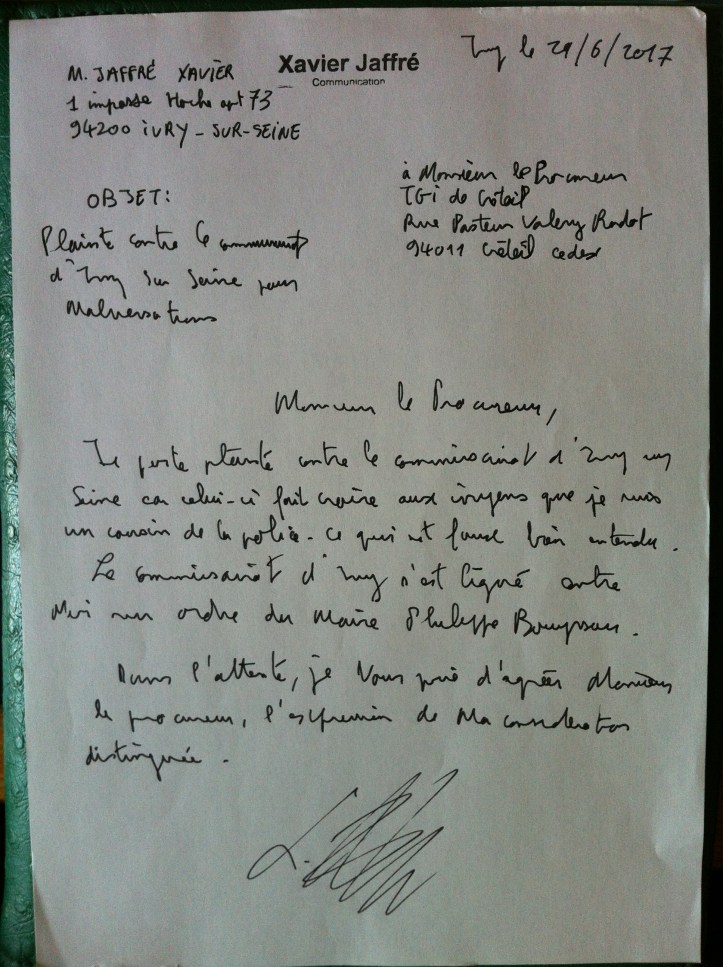 Xavier Jaffré
Communication
Ivry le 29/6/2017
M. JAFFRÉ XAVIER
1 impasse Hoche apt 73
94200 IVRY - SUR-SEINE
à Monsieur le Procureur
TGI de Créteil
Rue Pasteur Valery Radot
94011 Créteil cedex
OBJET:
Plainte contre le commissariat
d'Ivry sur Seine pour
Malversations
Monsieur le Procureur,
Je porte plainte contre le commissariat d'Ivry sur
Seine car celui-ci fait croire aux ivryens que je suis
un cousin de la police - ce qui est faux bien entendu.
Le commissariat d'Ivry s'est ligué contre
Moi sur ordre du Maire Philippe Bouyssou.
Dans l'attente, je Vous prie d'agréer Monsieur
le procureur, l'expression de Ma considération
distinguée.